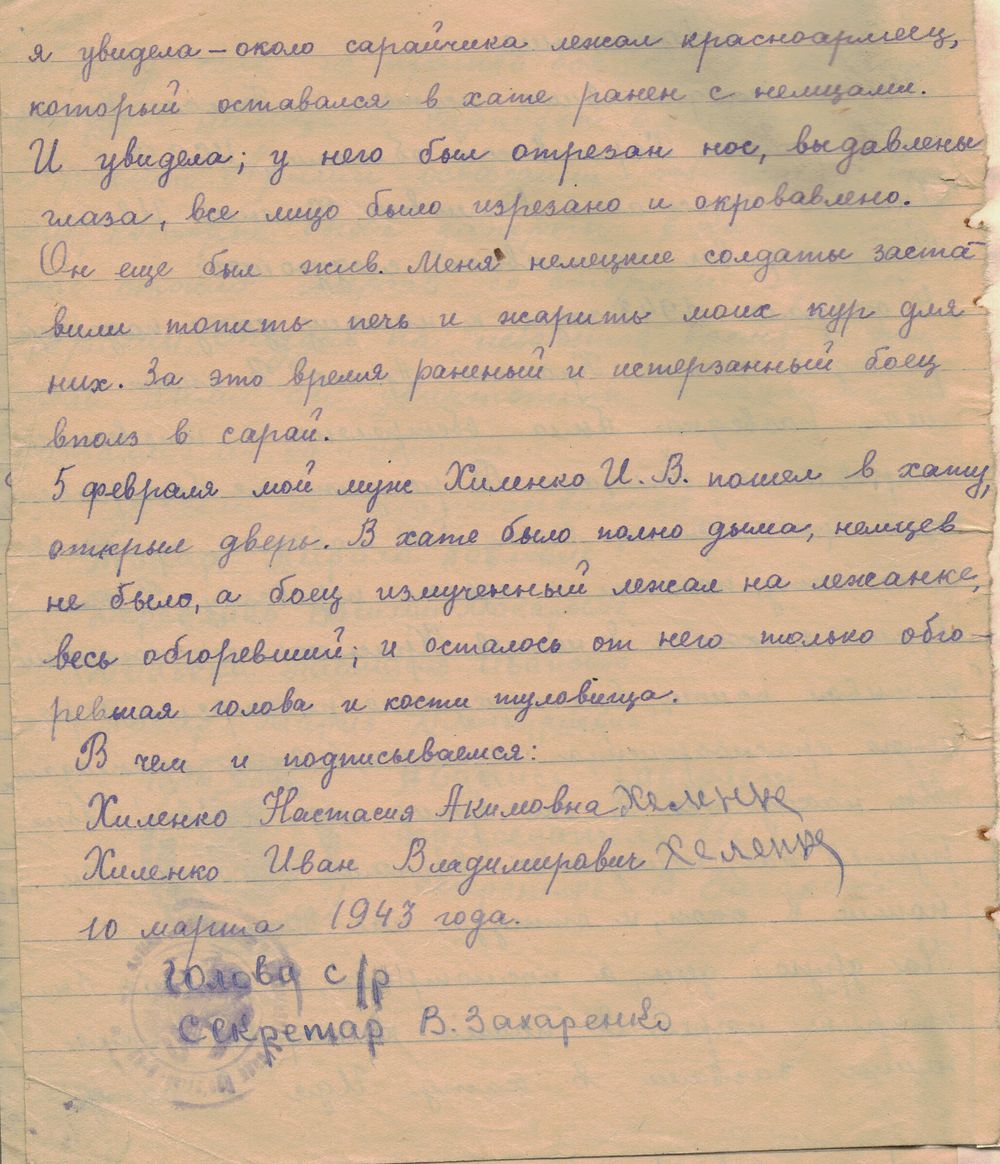 я увидела – около сарайчика лежал красноармеец,
который оставался в хате ранен с немцами.
И увидела; у него был отрезан нос, выдавлены
глаза, все лицо было изрезано и окровавлено.
Он еще был жив. Меня немецкие солдаты заста-
вили топить печь и жарить моих кур для
них. За это время раненый и истерзанный боец
вполз в сарай.
5 февраля мой муж Хиленко И. В. пошел в хату,
открыл дверь. В хате было полно дыма, немцев
не было, а боец измученный лежал на лежанке,
весь обгоревший; и осталось от него только обго-
ревшая голова и кости туловища.
В чем и подписываемся:
Хиленко Настасия Акимовна Хеленко
Хиленко Иван Владимирович Хеленко
10 марта 1943 года.
Голова с/р
Секретар В. Захаренко